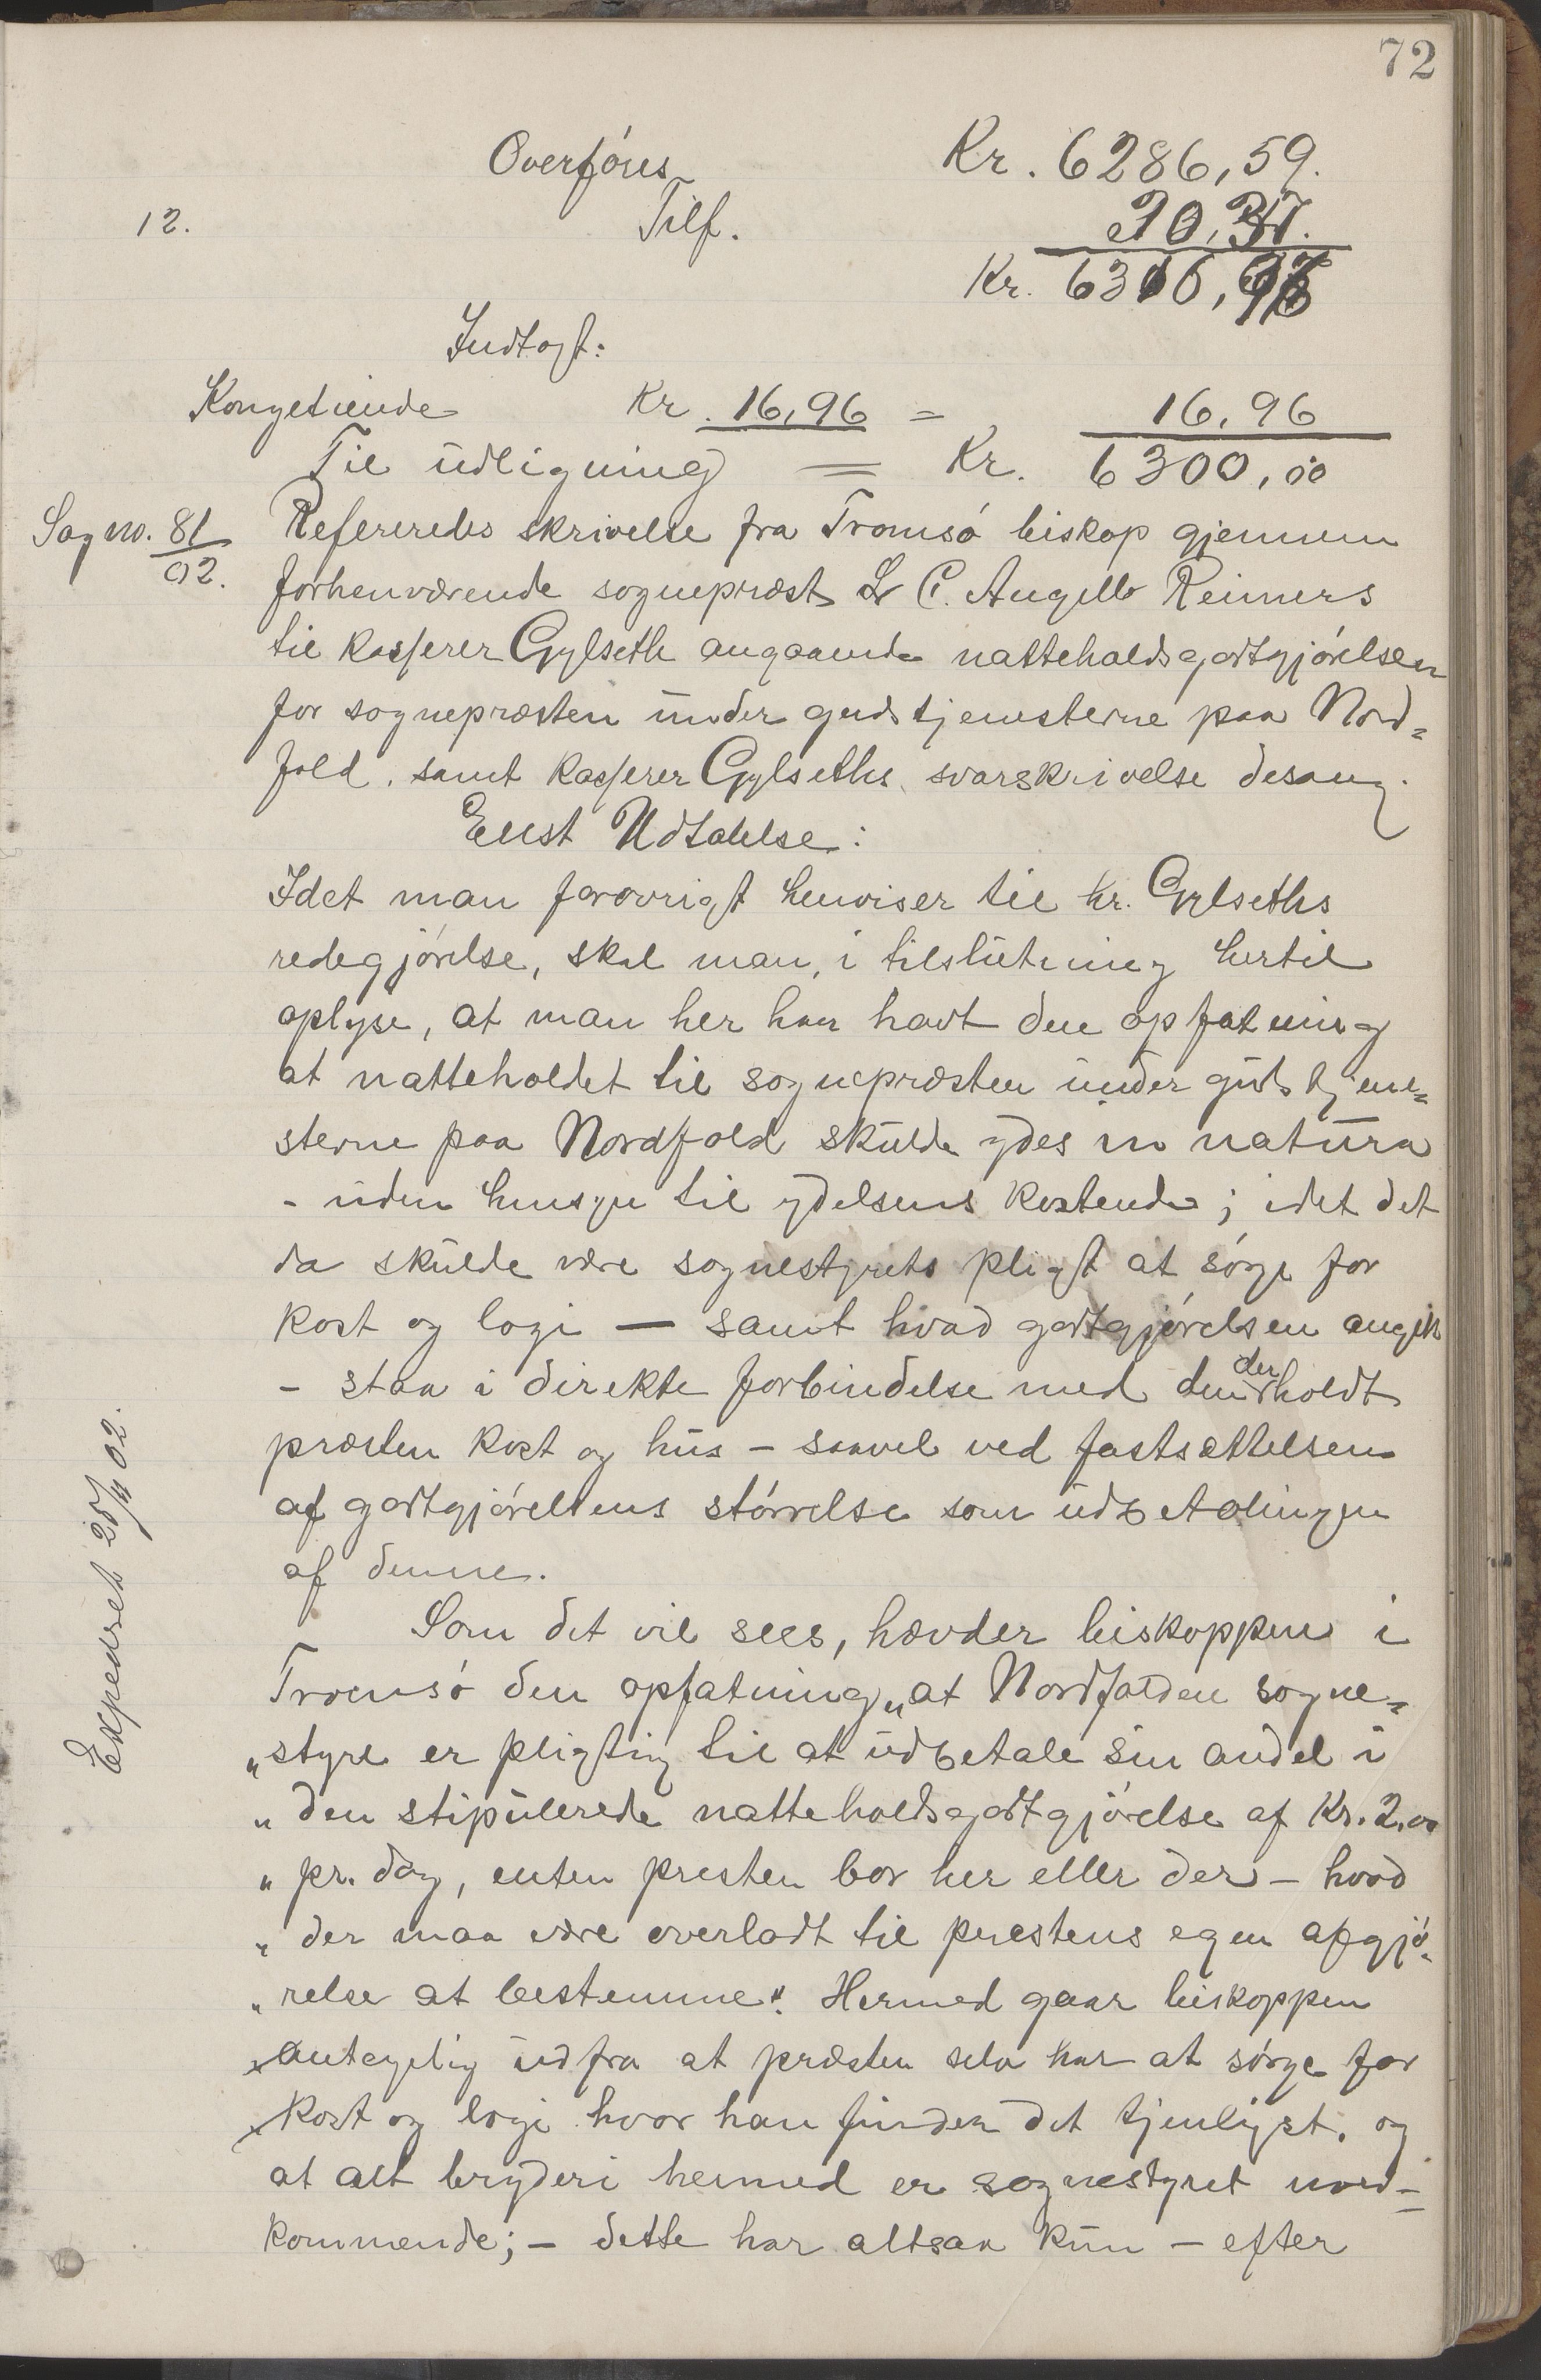 72
Overføres Kr. 6286,59.
12. Tilf. 30,37.
Kr. 6316,96
Indtægt:
Kongetiende Kr. 16,96 = 16,96
Til udligning = Kr. 6300,00
Sag no. 81/02. Refereredes skrivelse fra Tromsø biskop gjennem
forhenværende sogneprest L C. Angell Reimers
til kasserer Gylseth angaaende natteholdsgodtgjørelsen
for sognepræsten under gudstjenesterne paa Nord=
fold, samt kasserer Gylseths svarskrivelse desang.
Enst Udtalelse:
Idet man forøvrigt henviser til hr. Gylseths
redegjørelse, skal man, i tilslutning hertil
oplyse, at man her har havt den opfatning
at natteholdet til sognepræsten under gudstjene=
sterne paa Nordfold skulde ydes in natura
- uden hensyn til ydelsens kostende; idet det
da skulde være sognestyrets pligt at sørge for
kost og logi — samt hvad godtgjørelsen angik
- staa i direkte forbindelse med den der holdt
præsten kost og hus - saavel ved fastsættelsen
af godtgjørelsens størrelse som udbetalingen
af denne.
Som det vil sees, hævder biskoppen i
Tromsø den opfatning „at Nordfolden sogne=
„styre er pligtig til at udbetale sin andel i
„den stipulerede natteholdsgodtgjørelse af Kr. 2.00
„pr. dag, enten presten bor her eller der - hvad
„der maa være overladt til prestens egen afgjø=
„relse at bestemme“. Hermed gaar biskoppen
antagelig ud fra at præsten selv har at sørge for
kost og logi hvor han finder det tjenligst, og
at alt bryderi hermed er sognestyret uved=
kommende; - dette har altsaa kun - efter
Expedret 25/4 02.